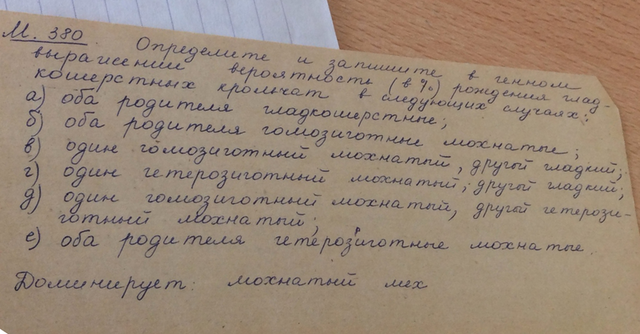 М. 380. Определите и запишите в генном
выражении вероятность (в %) рождения глад-
кошерстных крольчат в следующих случаях:
а) оба родителя гладкошерстные;
б) оба родителя гомозиготные мохнатые;
в) один гомозиготный мохнатый, другой гладкий;
г) один гетерозиготный мохнатый; другой гладкий;
д) один гомозиготный мохнатый, другой гетерози-
готный мохнатый;
е) оба родителя гетерозиготные мохнатые.
Доминирует: мохнатый мех